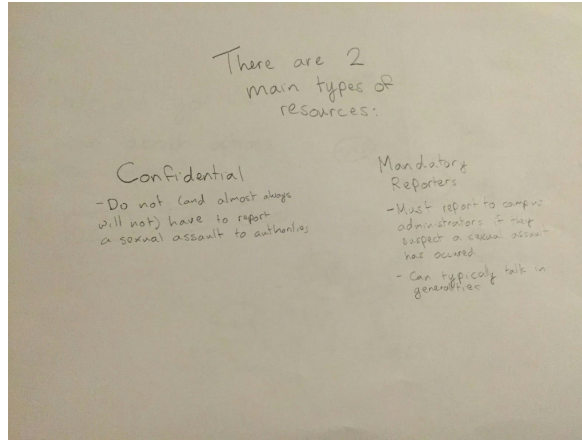 There are 2
main types of
resources:
Confidential
- Do not (and almost always
will not) have to report
a sexual assault to authorities
Mandatory
Reporters
- Must report to campus
administrators if they
suspect a sexual assault
has occured
- Can typicaly talk in
generalities